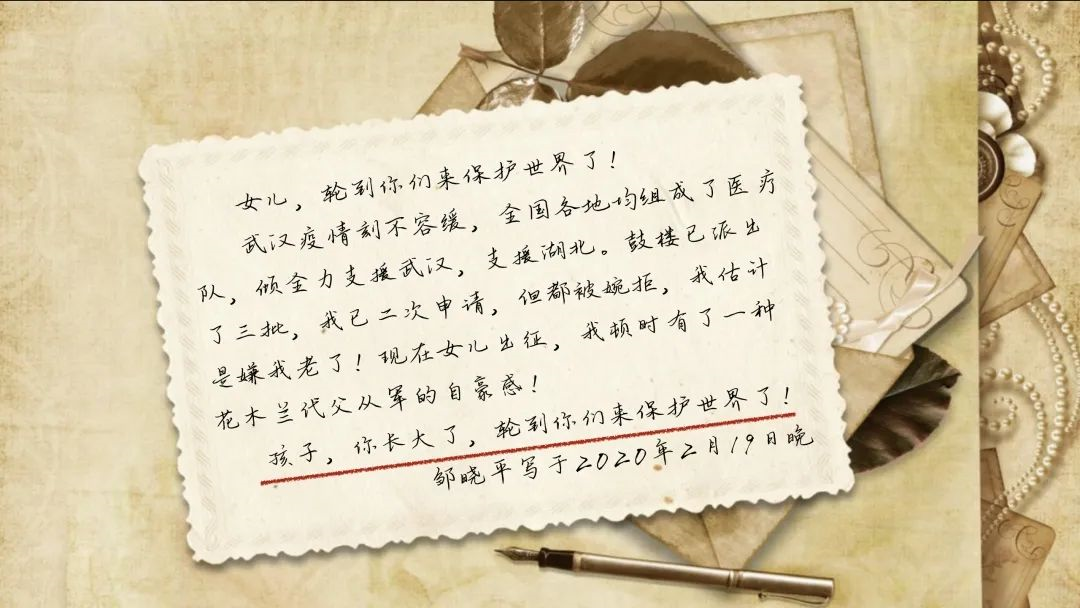 女儿，轮到你们来保护世界了！
武汉疫情刻不容缓，全国各地均组成了医疗
队，倾全力支援武汉，支援湖北。鼓楼已派出
了三批，我已二次申请，但都被婉拒，我估计
是嫌我老了！现在女儿出征，我顿时有了一种
花木兰代父从军的自豪感！
孩子，你长大了，轮到你们来保护世界了！
邹晓平写于2020年2月19日晚